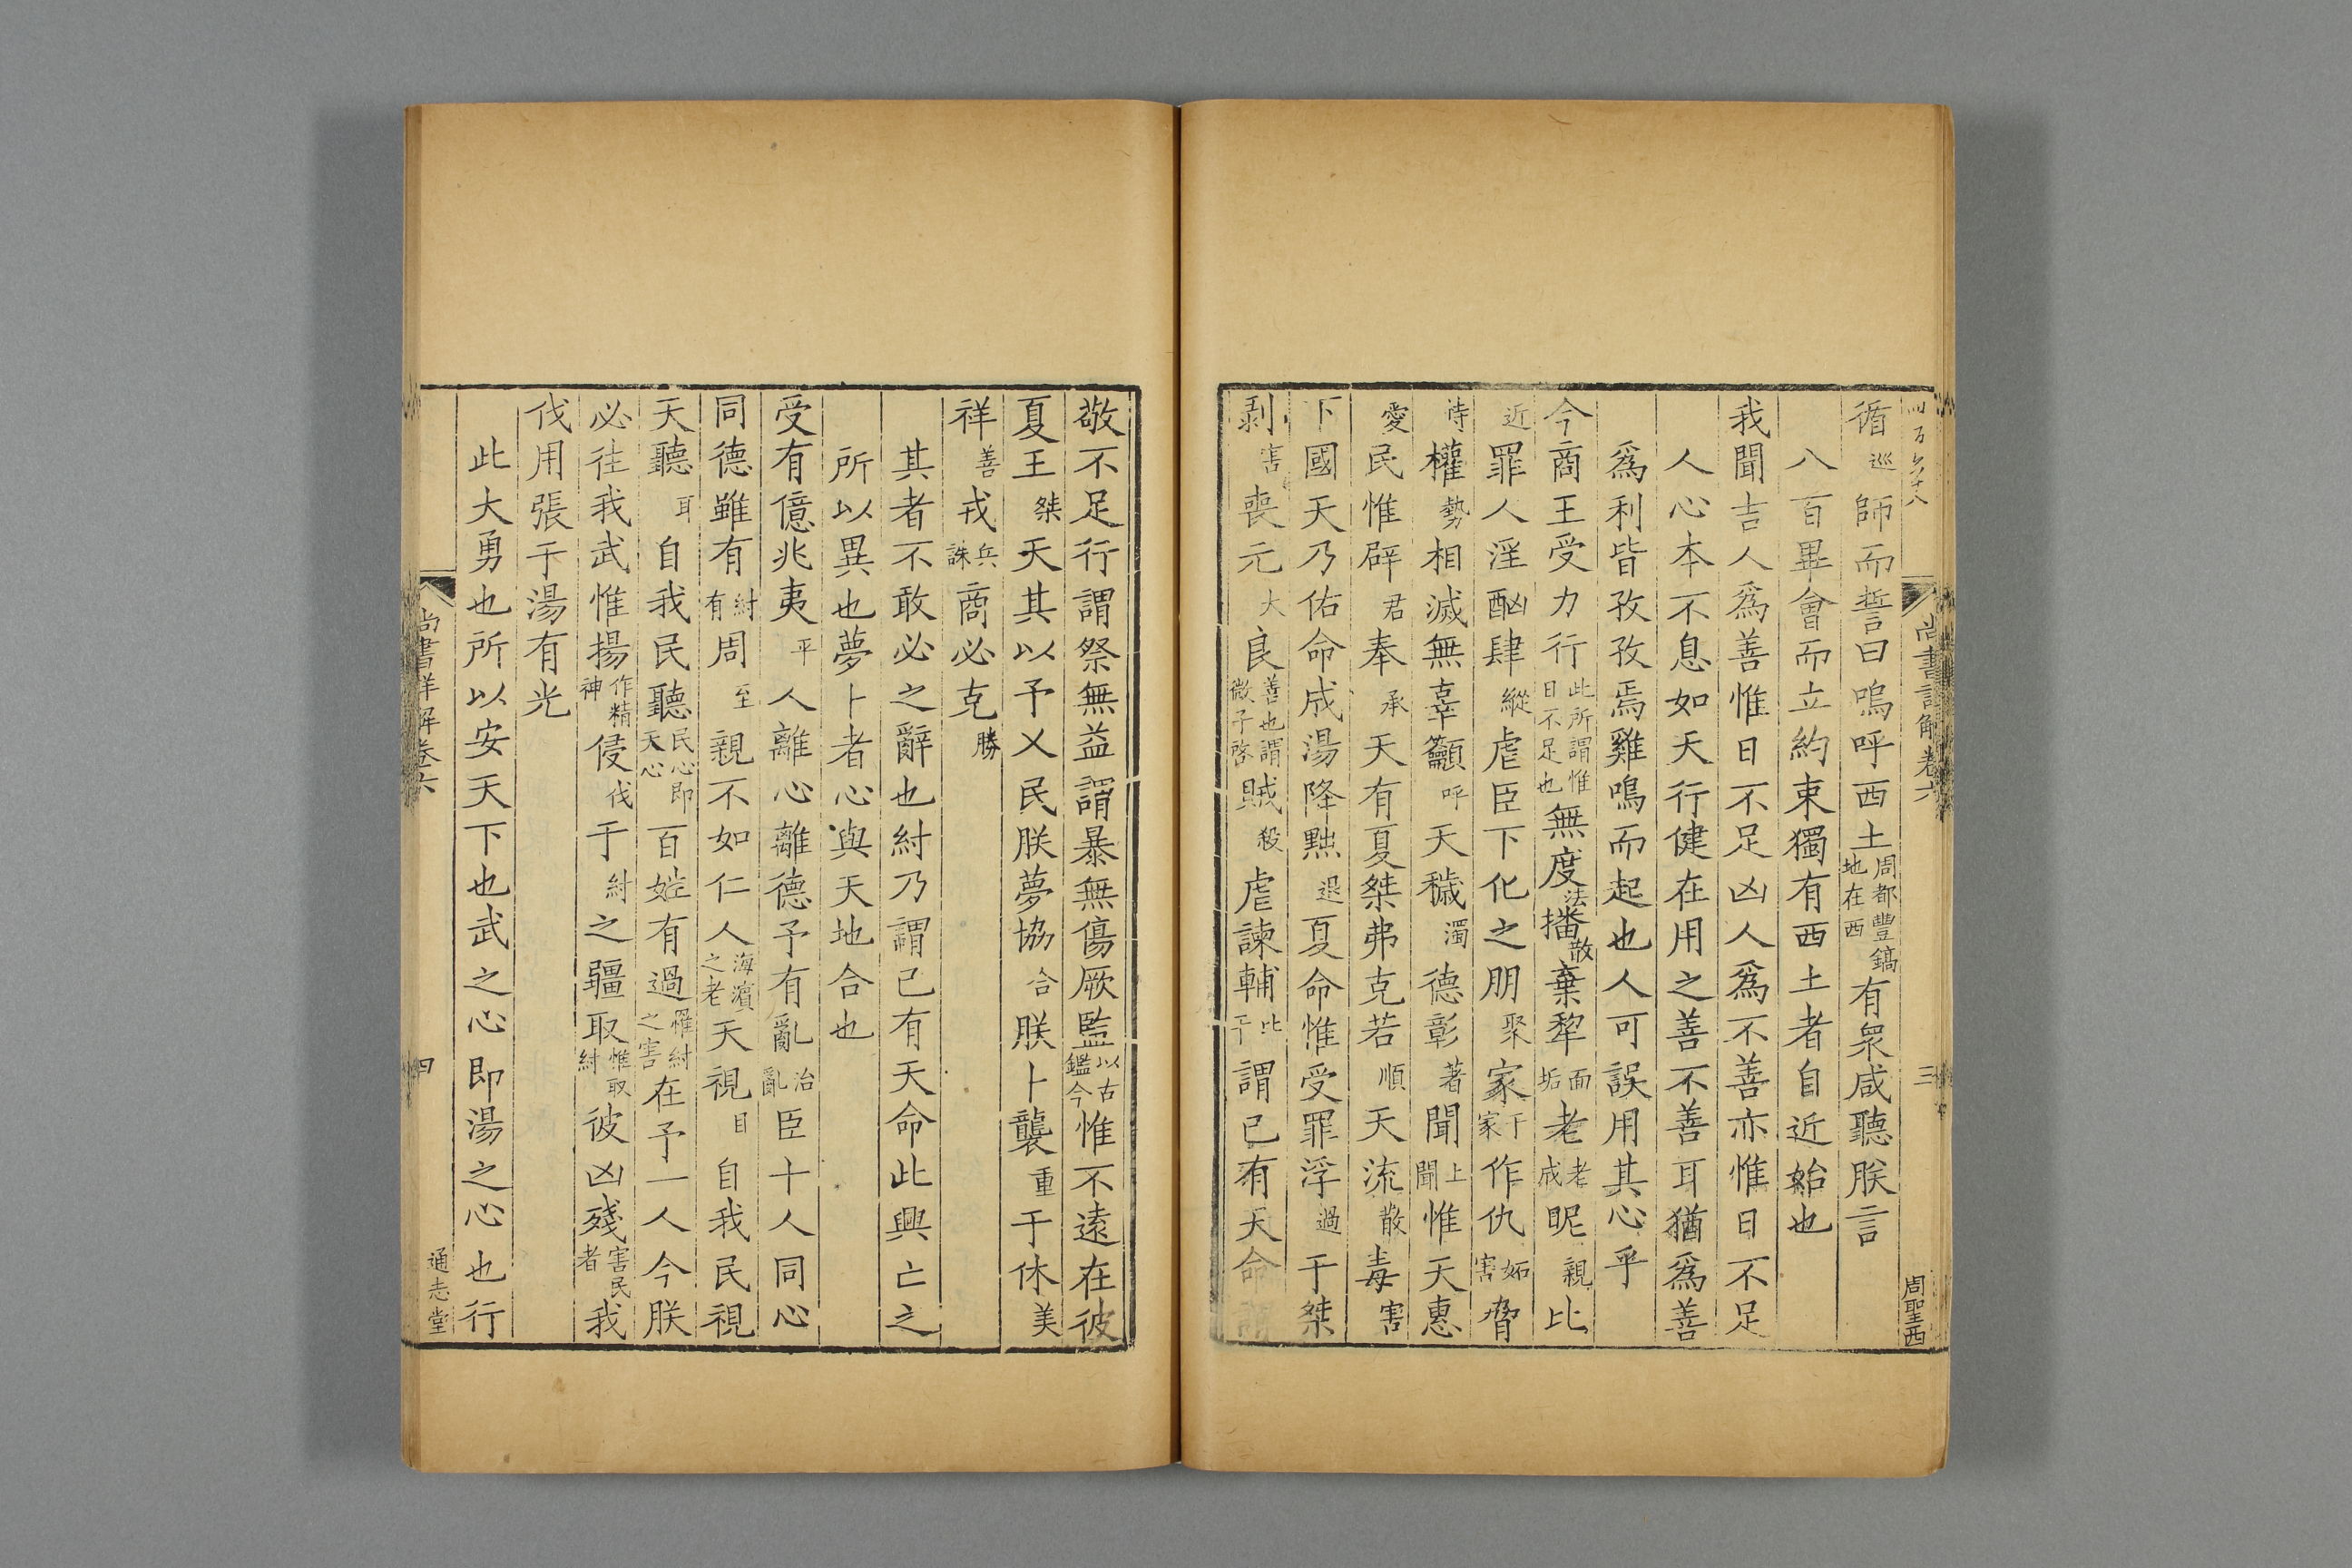 尚書詳解卷六
三
周聖西
循巡師而誓曰嗚呼西土周都豐鎬地在西有衆咸聽朕言
八百畢會而立約束獨有西土者自近始也
我聞吉人爲善惟日不足凶人爲不善亦惟日不足
人心本不息如天行健在用之善不善耳猶爲善
爲利皆孜孜焉雞鳴而起也人可誤用其心乎
今商王受力行此所謂惟日不足也無度法播散棄犂面垢老老成昵親比
近罪人淫酗肆縱虐臣下化之朋聚家于家作仇妬害脅
恃權勢相滅無辜籲呼天穢濁德彰著聞上聞惟天惠
愛民惟辟君奉承天有夏桀弗克若順天流散毒害
下國天乃佑命成湯降黜退夏命惟受罪浮過于桀
剥害喪元大良善也謂微子啓賊殺虐諫輔比干謂已有天命謂
敬不足行謂祭無益謂暴無傷厥監以古鑑今惟不遠在彼
夏王桀天其以予乂民朕夢協合朕卜襲重于休美
祥善戎兵誅商必克勝
其者不敢必之辭也紂乃謂已有天命此興亡之
所以異也夢卜者心與天地合也
受有億兆夷平人離心離德予有亂治亂臣十人同心
同德雖有紂有周至親不如仁人海濱之老天視目自我民視
天聽耳自我民聽民心即天心百姓有過罹紂之害在予一人今朕
必往我武惟揚作精神侵伐于紂之疆取惟取紂彼凶殘害民者我
伐用張于湯有光
此大勇也所以安天下也武之心即湯之心也行
尚書詳解卷六
四
通志堂